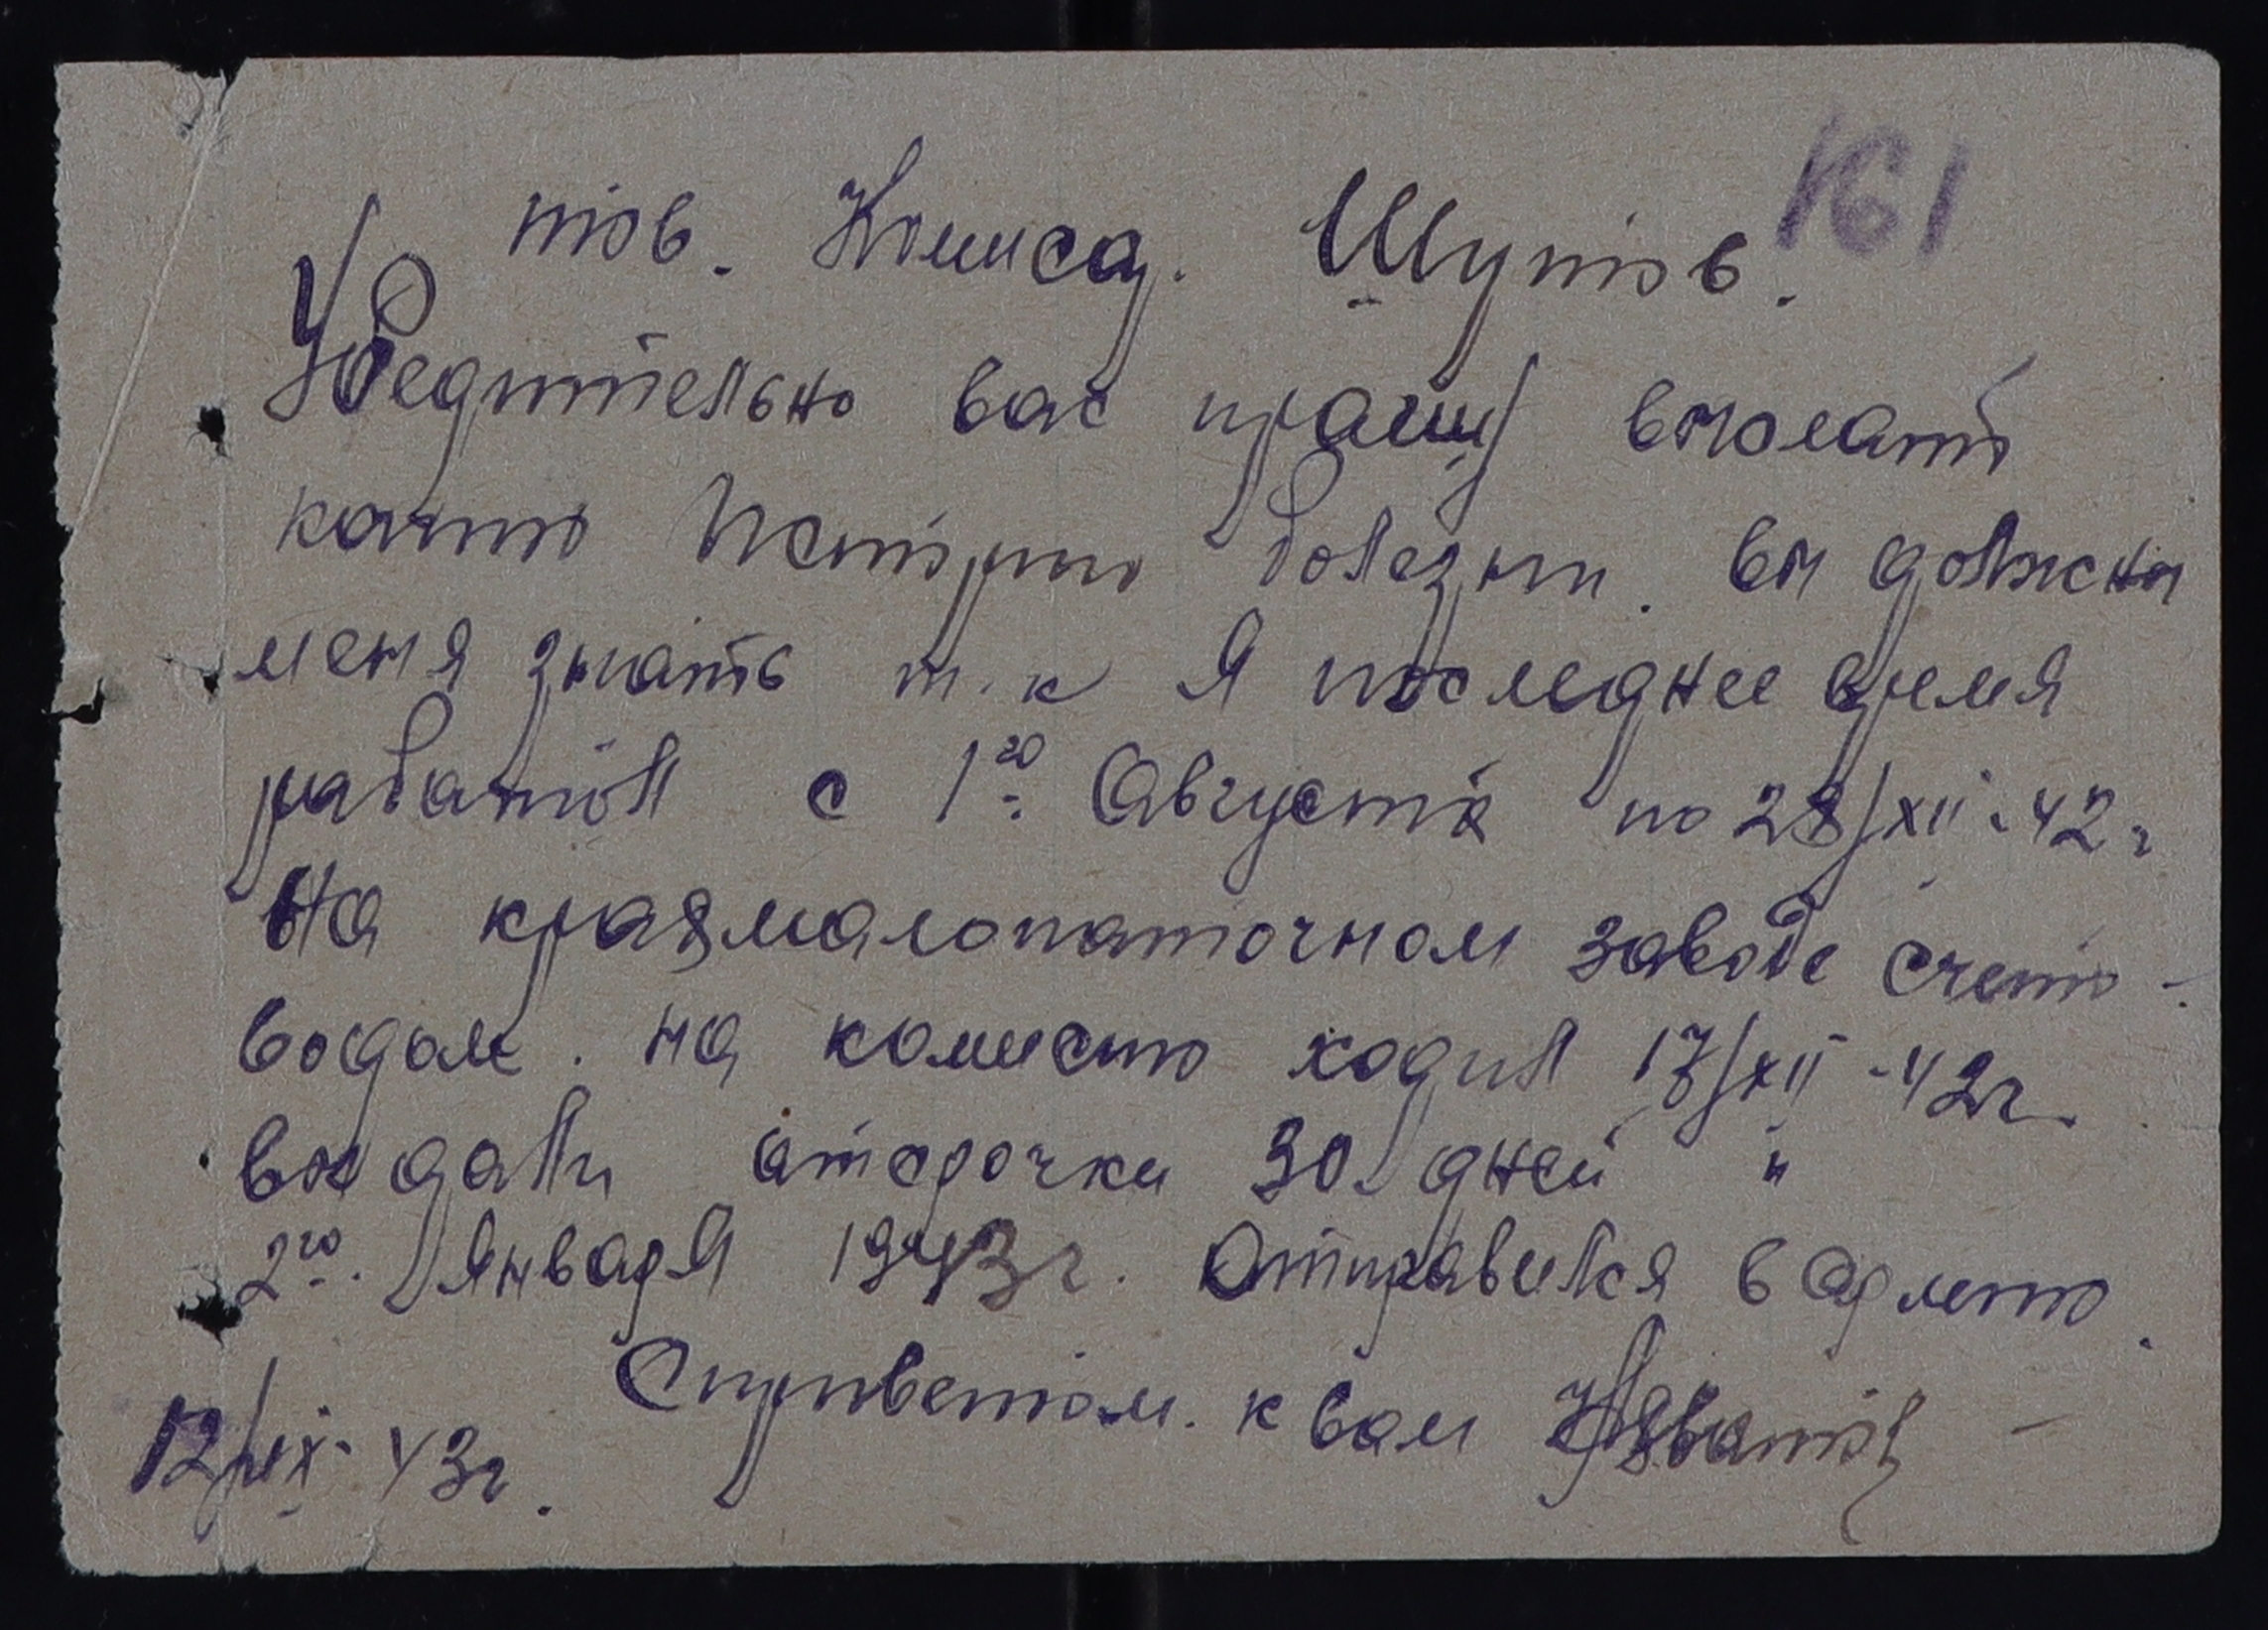 161
тов. Комисар. Шутов.
Убедительно вас прашу выслать
историю болезни. вы должны
меня знать т.к я последнее время
работал с 1го Августа по 28/XII-42г
На крахмалопаточном заводе счето-
водом. на комисию ходил 17/XII-42г
выдали отсрочки 30 дней и
2го Января 1943г. Отправился в Армию.
С приветом. к вам
12/IX-43г.